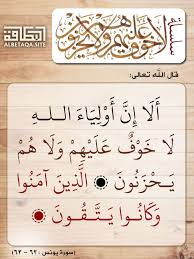 البطاقة
ALBETAQA.SITE
سلسلة
لا خوف عليهم ولا هم يحزنون
قال الله تعالى:
أَلَا إِنَّ أَوْلِيَاءَ اللَّهِ
لَا خَوْفٌ عَلَيْهِمْ وَلَا هُمْ
يَحْزَنُونَ الَّذِينَ آمَنُوا
وَكَانُوا يَتَّقُونَ
[سورة يونس : ٦٢ - ٦٣]